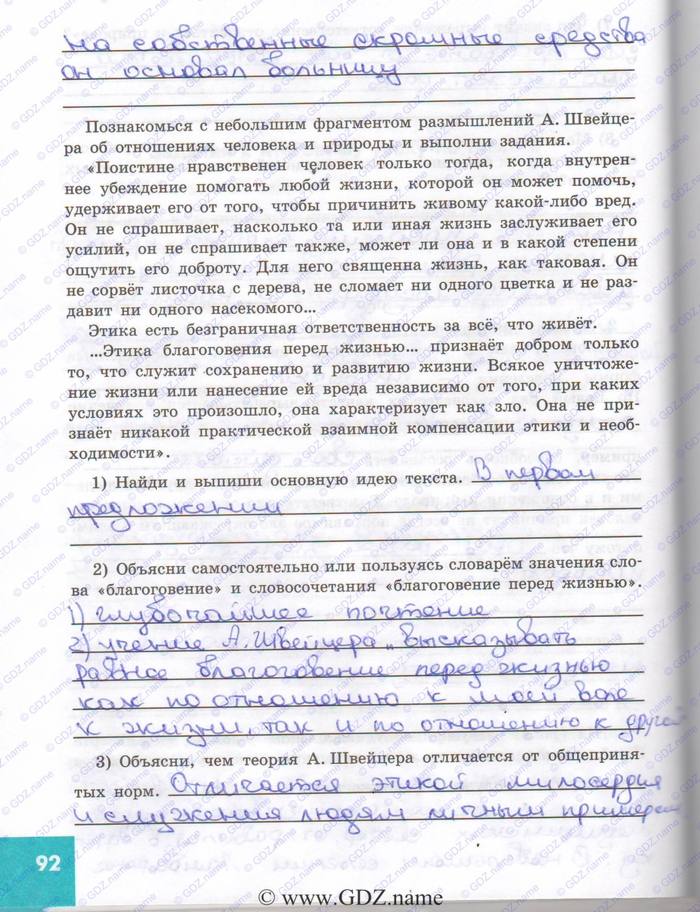 на собственные скромные средства
он основал больницу
Познакомься с небольшим фрагментом размышлений А. Швейце-
ра об отношениях человека и природы и выполни задания.
«Поистине нравственен человек только тогда, когда внутрен-
нее убеждение помогать любой жизни, которой он может помочь,
удерживает его от того, чтобы причинить живому какой-либо вред.
Он не спрашивает, насколько та или иная жизнь заслуживает его
усилий, он не спрашивает также, может ли она и в какой степени
ощутить его доброту. Для него священна жизнь, как таковая. Он
не сорвёт листочка с дерева, не сломает ни одного цветка и не раз-
давит ни одного насекомого...
Этика есть безграничная ответственность за всё, что живёт.
...Этика благоговения перед жизнью... признаёт добром только
то, что служит сохранению и развитию жизни. Всякое уничтоже-
ние жизни или нанесение ей вреда независимо от того, при каких
условиях это произошло, она характеризует как зло. Она не при-
знаёт никакой практической взаимной компенсации этики и необ-
ходимости».
1) Найди и выпиши основную идею текста. В первом
предложении
2) Объясни самостоятельно или пользуясь словарём значения сло-
ва «благоговение» и словосочетания «благоговение перед жизнью».
1) глубочайшее почтение
2) учение А. Швейцера „высказывать
равное благоговение перед жизнью
как по отношению к моей воле
к жизни, так и по отношению к другой
3) Объясни, чем теория А. Швейцера отличается от общеприня-
тых норм. Отличается этикой милосердия
и служения людям личным примером
92
© www.GDZ.name